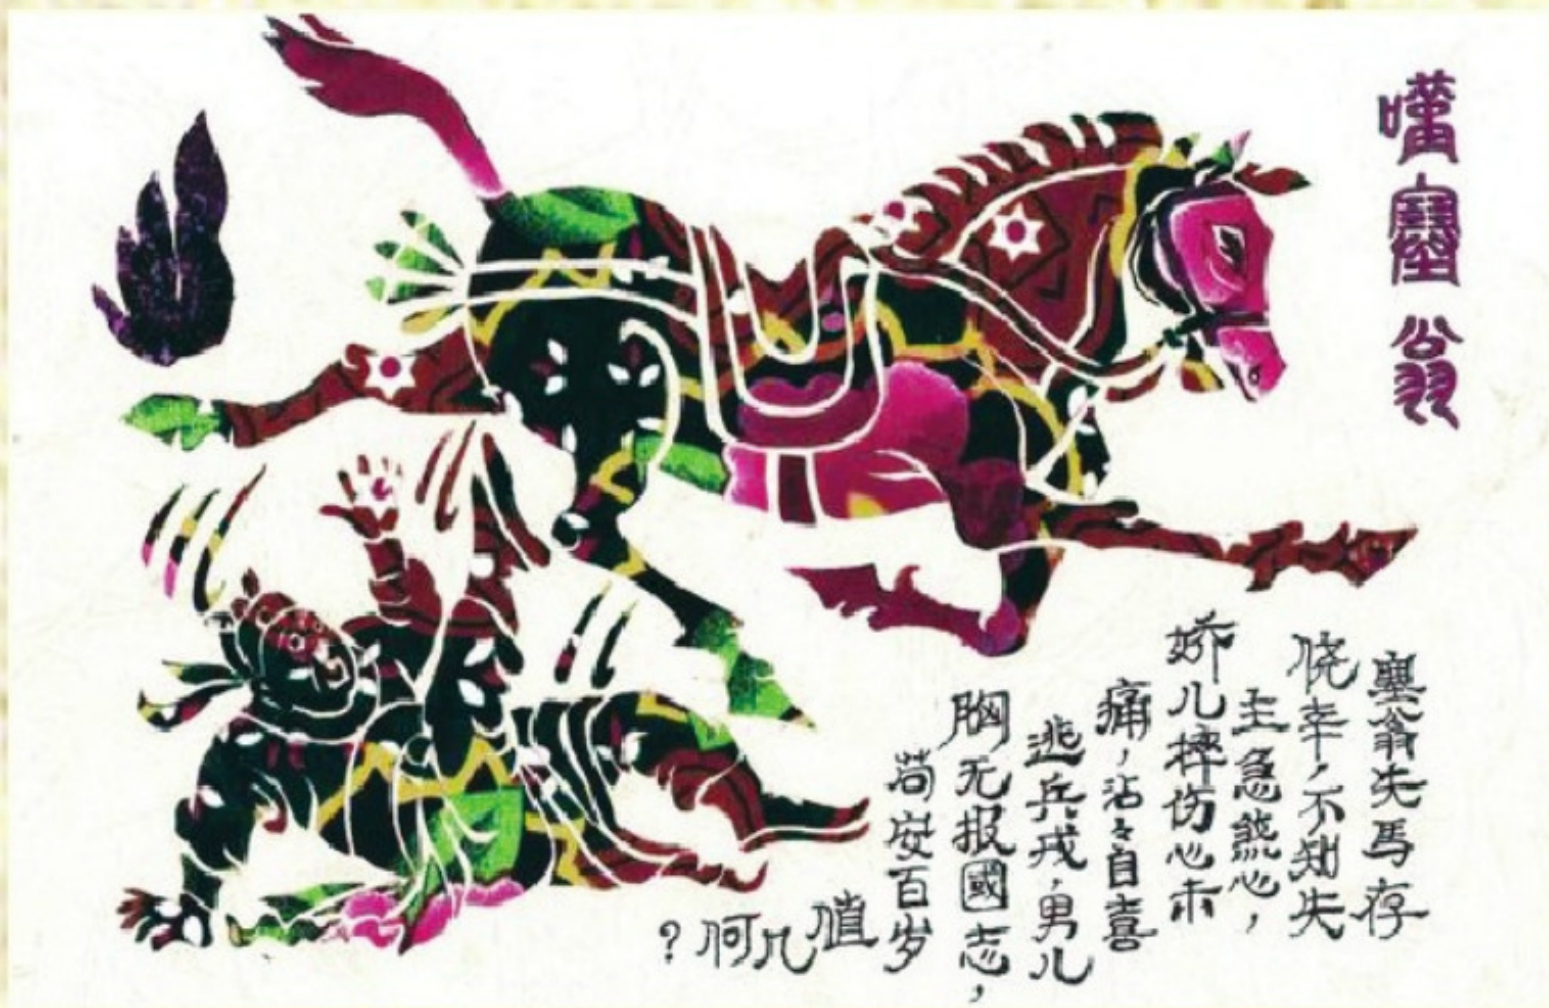 嘆塞翁
塞翁失马存
侥幸,不知失
主急煞心,
娇儿摔伤心未
痛,沾々自喜
逃兵戎,男儿
胸无报國志,
苟安百岁
值几何?